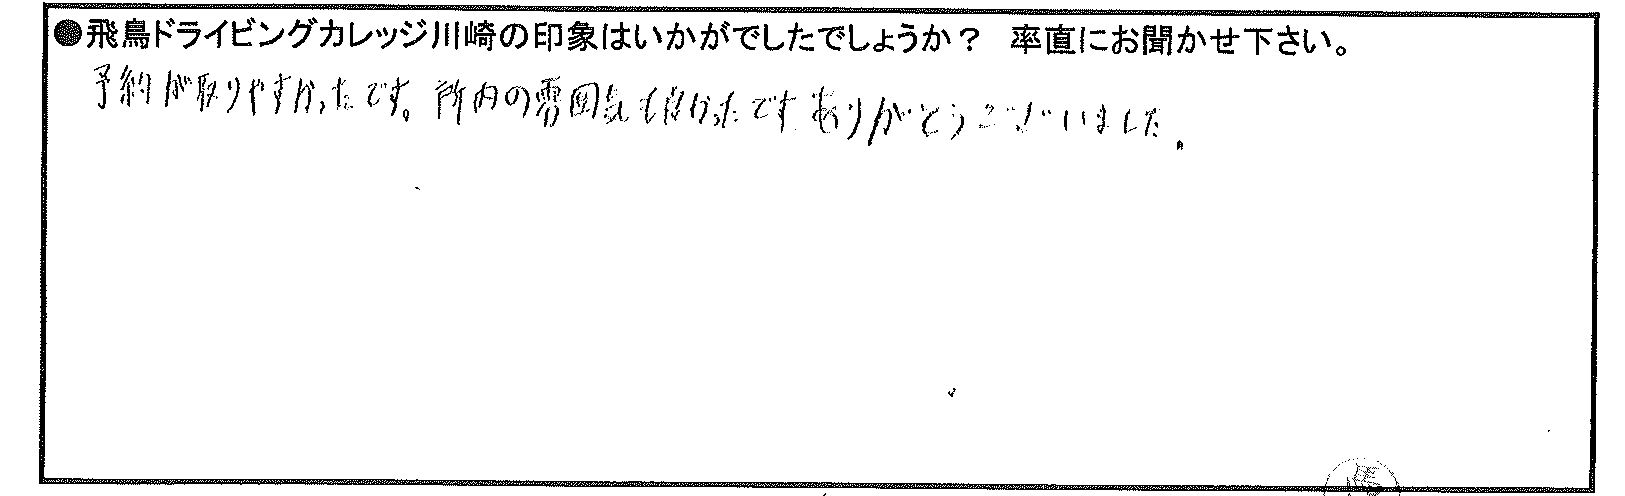 ●飛鳥ドライビングカレッジ川崎の印象はいかがでしたでしょうか？ 率直にお聞かせ下さい。
予約が取りやすかったです。所内の雰囲気も良かったです。ありがとうございました。